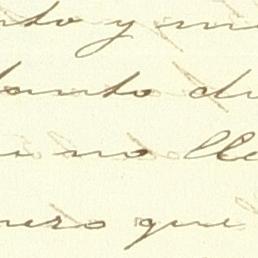 nto y m
tanto du
no lle
nero que